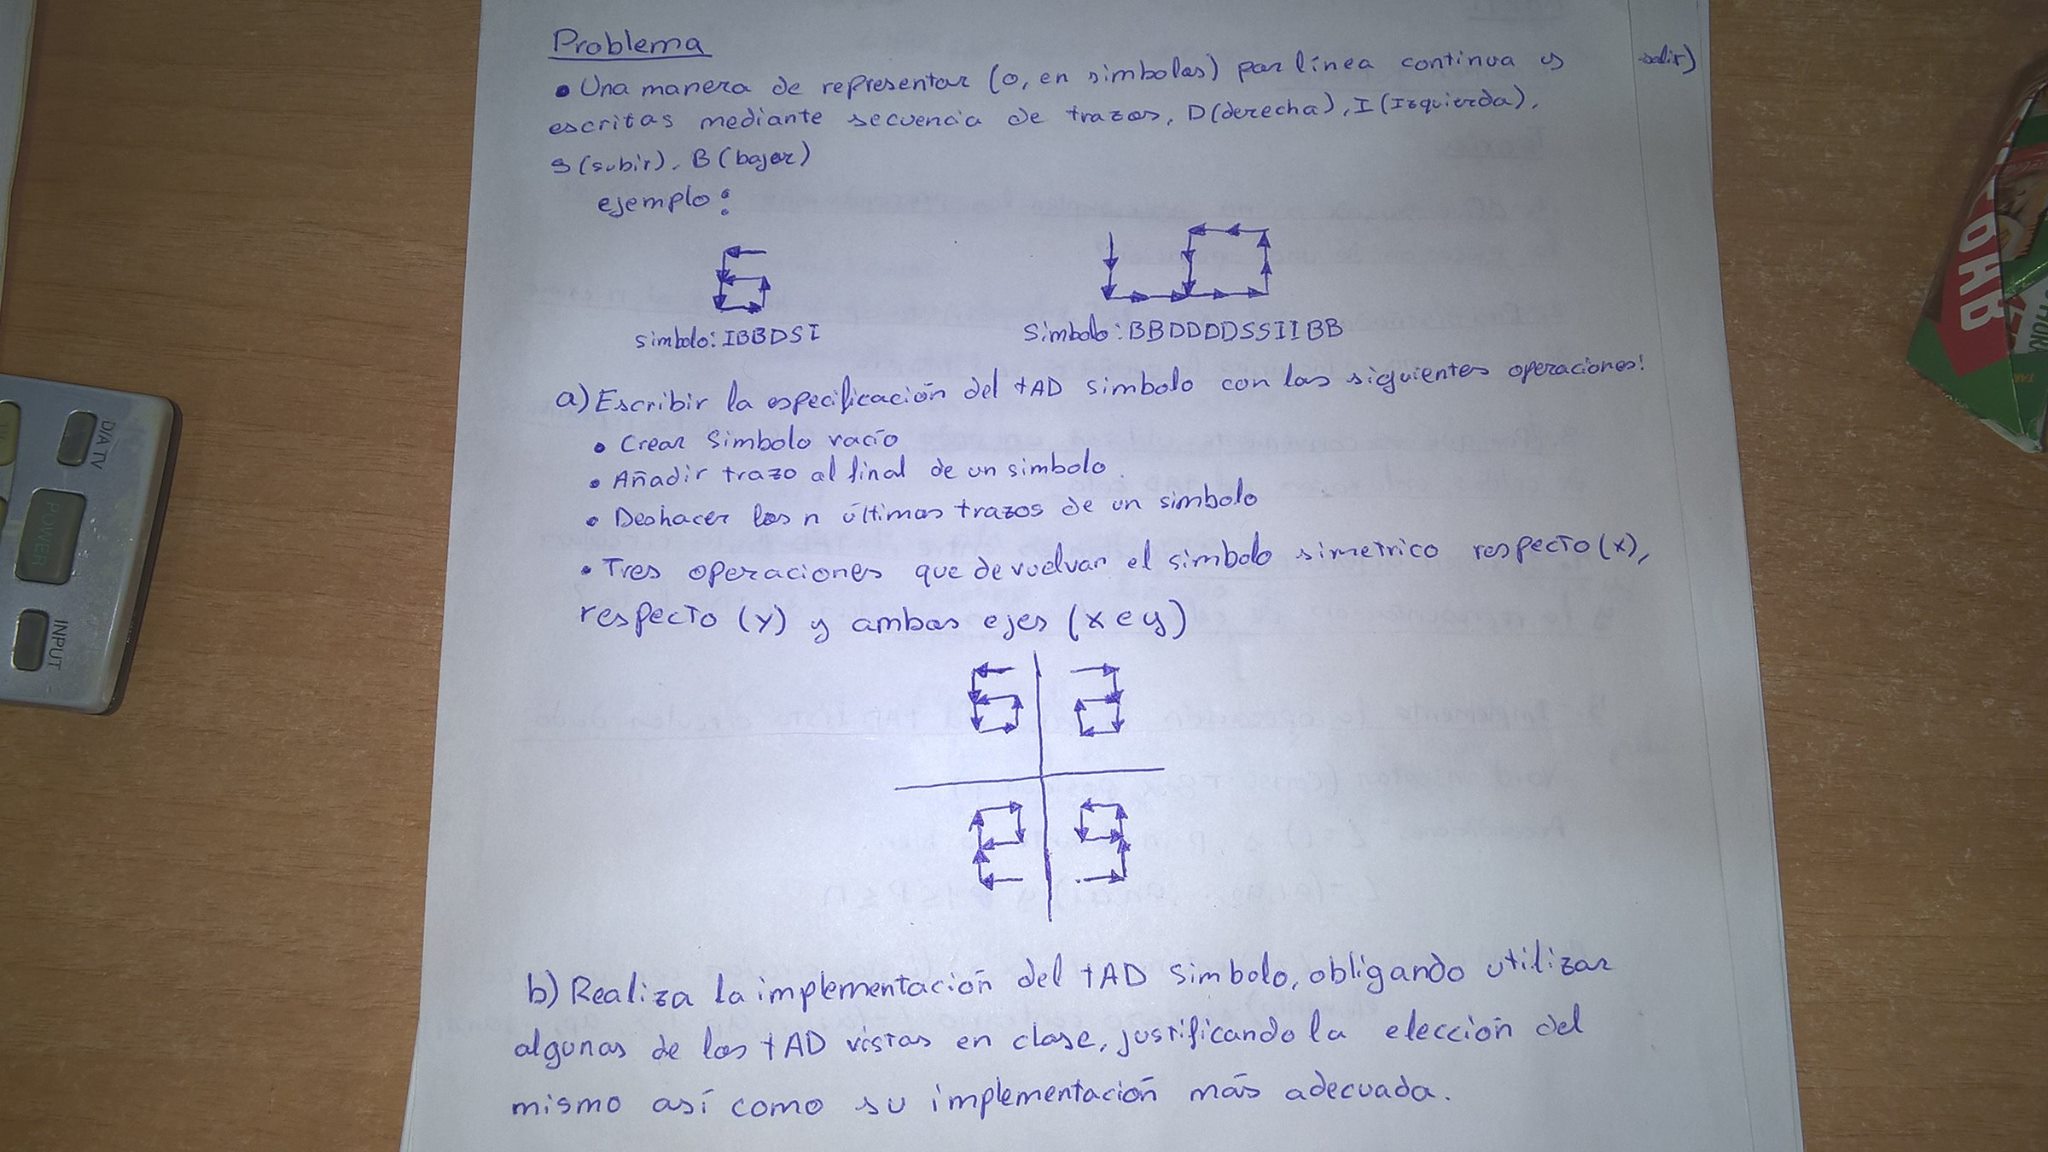 Problema
• Una manera de representar (o, en simbolos) por línea continua es salir)
escritas mediante secuencia de trazos, D(derecha), I (Izquierda),
S (subir), B (bajar)
ejemplo:
simbolo: IBBDSI
Simbolo: BBDDDDSSIIBB
a) Escribir la especificación del tAD simbolo con las siguientes operaciones:
• Crear Simbolo vacío
• Añadir trazo al final de un simbolo.
• Deshacer los n últimos trazos de un simbolo
• Tres operaciones que devuelvan el simbolo simetrico respecto (x),
respecto (y) y ambos ejes (x e y)
b) Realiza la implementación del tAD Simbolo, obligando utilizar
algunas de los tAD vistas en clase, justificando la elección del
mismo así como su implementación más adecuada.
D/A TV
POWER
INPUT